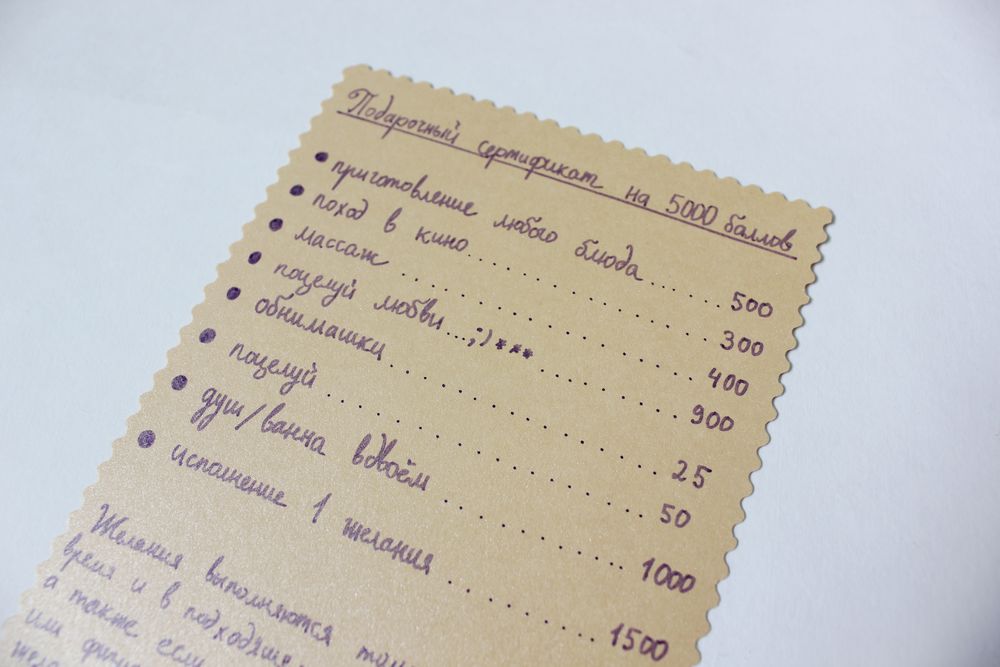 Подарочный сертификат на 5000 баллов
• приготовление любого блюда....... 500
• поход в кино................ 300
• массаж................ 400
• поцелуй любви...;)***....... 900
• обнимашки................ 25
• поцелуй................ 50
• душ/ванна вдвоём........... 1000
• исполнение 1 желания........ 1500
Желания выполняются
время и в
а также если
или